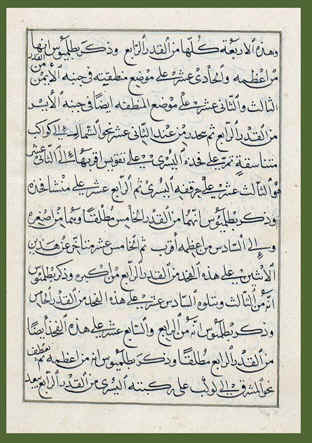 وهذه الاربعة كلها من القدر الرابع وذكر بطلميوس انها
من اعظمه والحادى عشر على موضع منطقته فى جنبه الايمن من القدر
الثالث والثانى عشر على موضع المنطقة ايضا فى جنبه الايسر
من القدر الرابع ثم ينحدر من عند الثانى عشر نحو الشمال كواكب
متناسقة تمر على فخذه اليسرى على تقويس اقربها الى الثانى عشر
هو الثالث عشر على حرقفته اليسرى ثم الرابع عشر على منشا فخذه
وذكر بطلميوس انهما من القدر الخامس مطلقا وهما من اصغره
والى السادس من اعظمه اقرب ثم الخامس عشر متاخر عن هذين
الاثنين على هذه الفخذ من القدر الرابع من اكبره وذكر بطلميوس
انه من الثالث ويتلوه السادس عشر على هذه الفخذ من القدر الخامس
وذكر بطلميوس انه من الرابع والسابع عشر على هذه الفخذ ايضا
من القدر الرابع مطلقا وذكر بطلميوس انه من اعظمه ثم
نحو الشرق على ركبته اليسرى من القدر الرابع